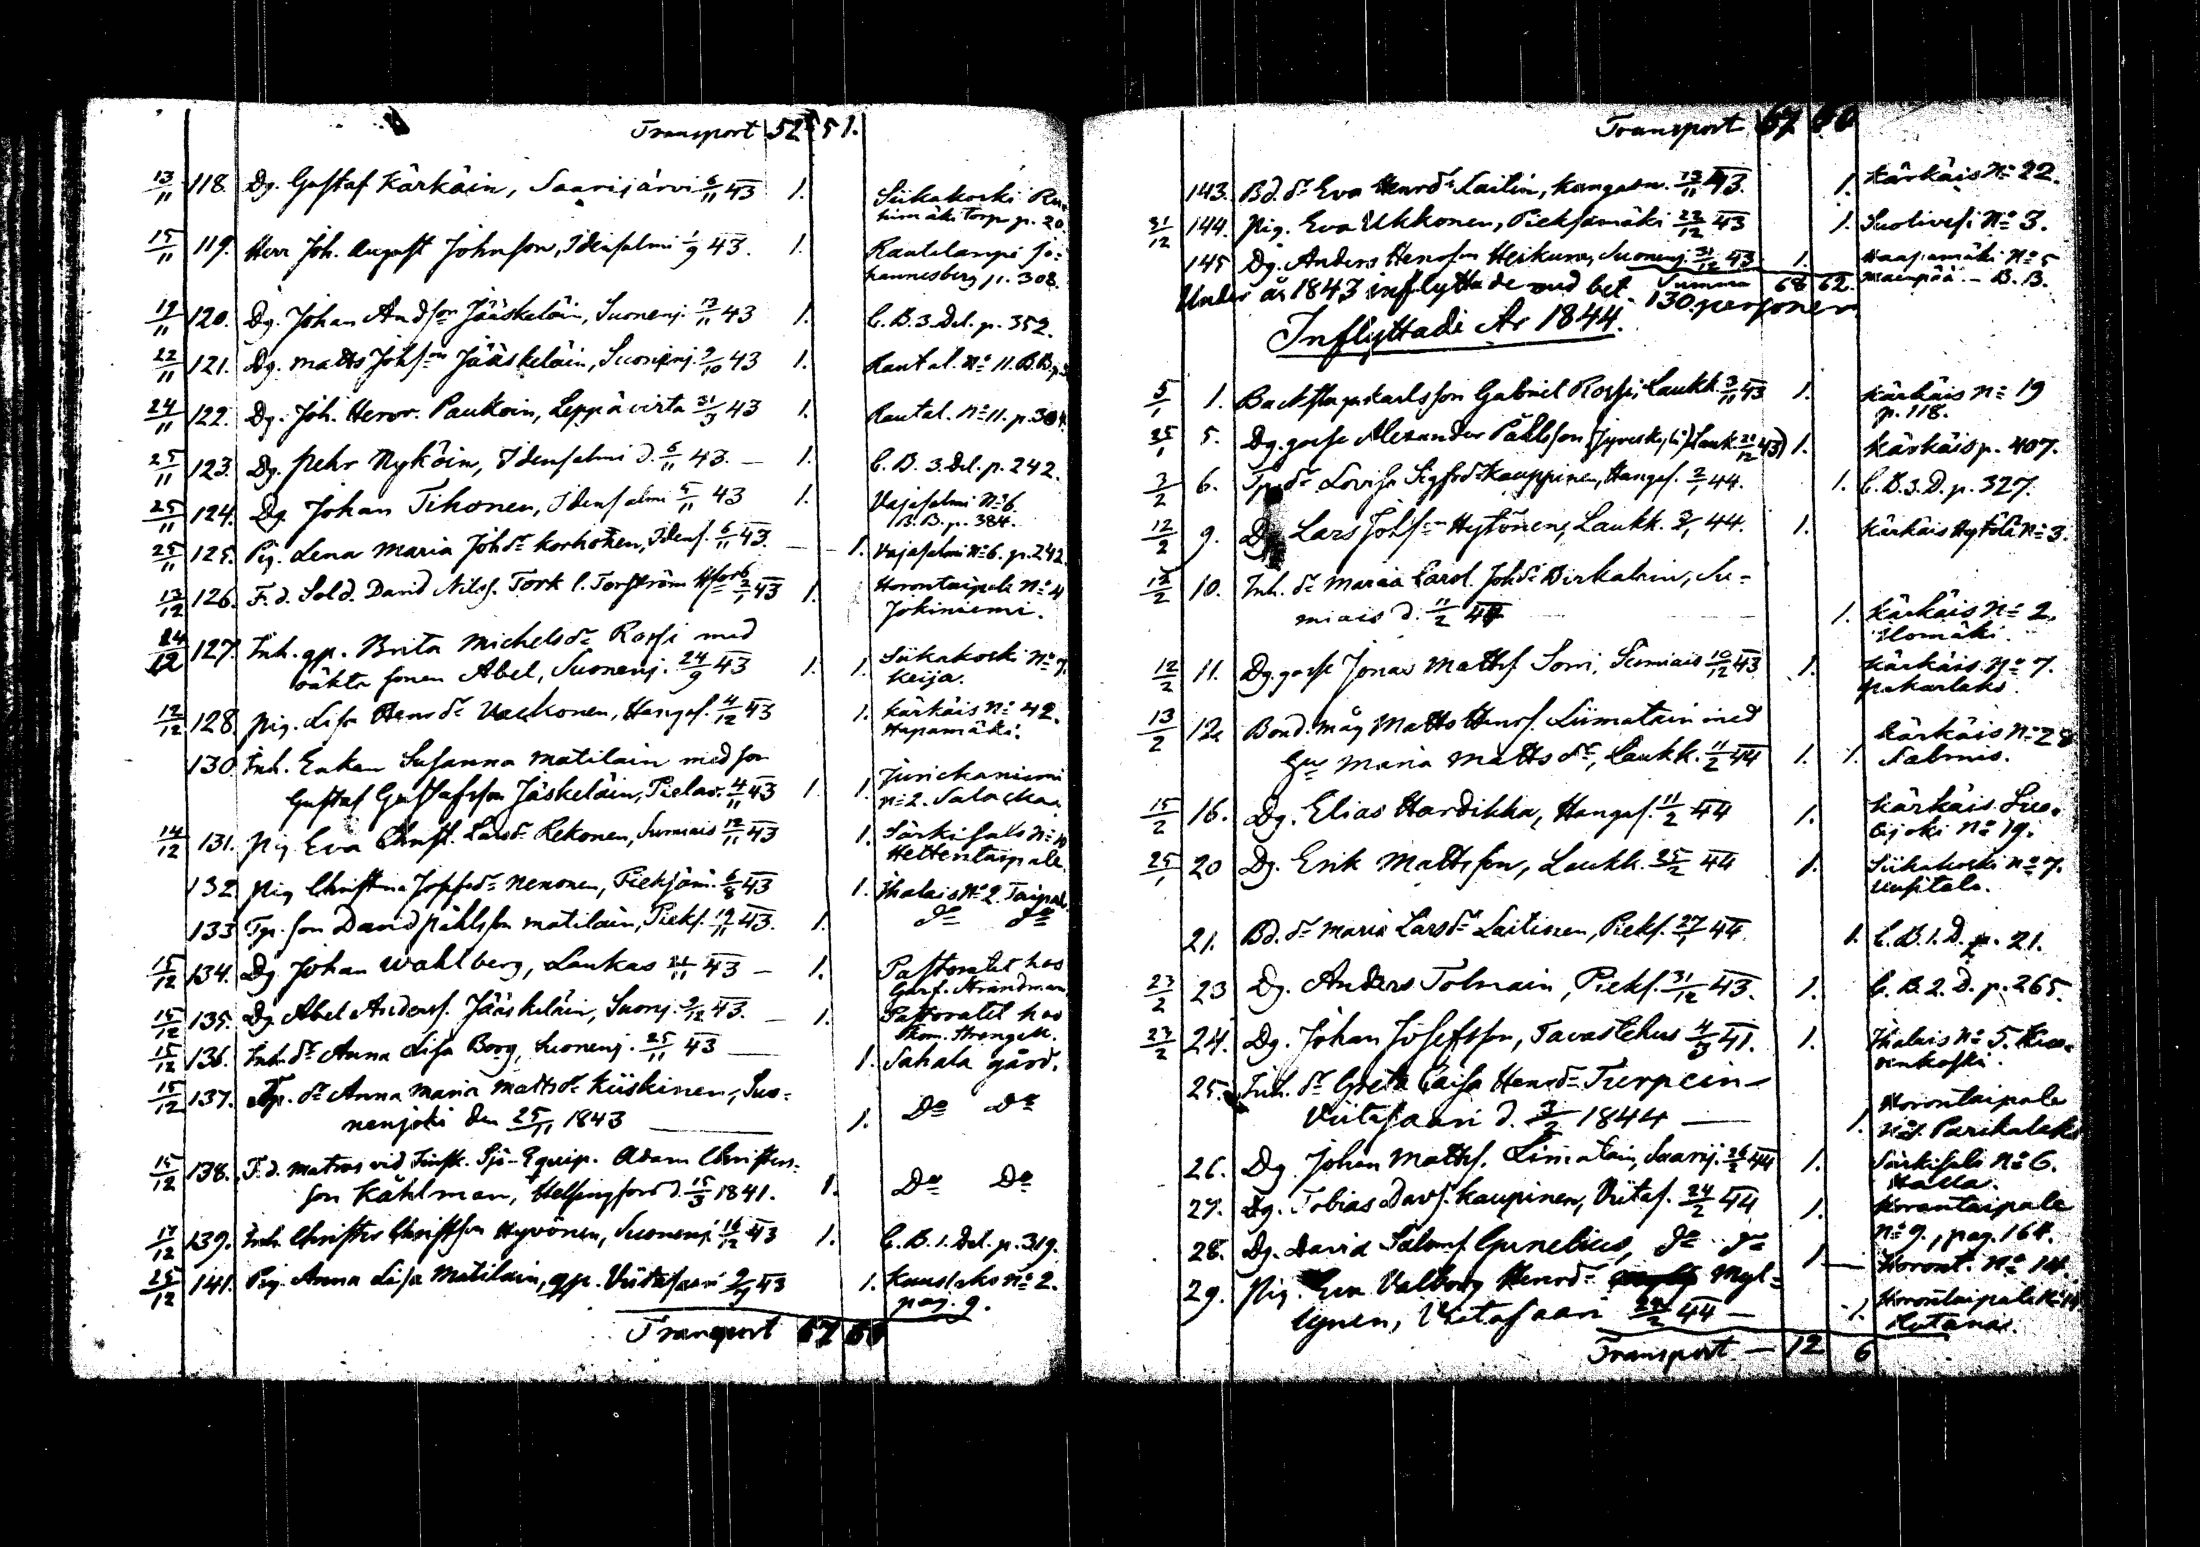 Transport 52 51.
13/11 118. Dg. Gustaf Kärkäin, Saarijärvi 6/11 43 1. Siikakoski
himäki Torp p. 20.
15/11 119. Herr Joh. August Johnsson, Idensalmi 1/9 43. 1. Rautalampi Jo-
hannesberg p. 308.
19/11 120. Dg. Johan Andsson Jääskeläin, Suonenj. 13/11 43 1. C.B. 3. Del. p. 352.
22/11 121. Dg. Matts Johsson Jääskeläin, Suonenj. 9/10 43 1. Rautal. No 11. B.B.
24/11 122. Dg. Joh. Henr. Paukoin, Leppävirta 31/3 43 1. Rautal. No 11. p. 304.
25/11 123. Dg. Pehr Nykäin, Idensalmi d. 6/11 43. — 1. C.B. 3. Del. p. 242.
25/11 124. Dg. Johan Tikonen, Idensalmi 5/11 43 1. Vajasalmi No 6.
B.B. p. 384.
25/11 125. Pig. Lena Maria Johdr Korhonen, Idens. 6/11 43. — 1. Vajasalmi No 6. p. 242
13/12 126. F.d. Sold. David Nilss. Tork l. Torström Hfors 2/1 43 1. Horontaipale No 4
Jokiniemi.
24/12 127. Inh. gp. Brita Michelsdr Rossi med
oäkta sonen Abel, Suonenj. 24/9 43 1. 1. Siikakoski No 7.
Keija.
12/12 128. Pig. Lisa Henrdr Vackonen, Hangas. 4/12 43 1. Kärkäis No 42.
Hapamäki.
130 Inh. Enkan Susanna Matilain med son
Gustaf Gustafsson Jäskeläin, Pielav. 4/11 43 1. 1. Jurickaniemi
No 2.
14/12 131. Pig. Eva Christ. Larsdr Rekonen, Sumiais 12/11 43 1. Särkisalo No 10
Hettentaipale.
132. Pig. Christina Josefsdr Nenonen, Pieksäm. 6/8 43 1. Ihalais No 2. Taipale
133 Tp. son David Påhlsson Matilain, Pieks. 19/11 43. 1. Do Do
15/12 134. Dg. Johan Wahlberg, Laukas 21/11 43 — 1. Pastoratet hos
Garf. Strandman
15/12 135. Dg. Abel Andersf. Jääskeläin, Suonj. 9/12 43. — 1. Pastoratet hos
Thom. Strengell.
15/12 136. Inh. dr Anna Lisa Borg, Suonenj. 25/11 43 — 1. Sahala gård.
15/12 137. Tp. dr Anna Maria Mattsdr Kiiskinen, Suo-
nenjoki den 25/11 1843 — 1. Do Do
15/12 138. F.d. Matros vid Finsk. Sjö-Equip. Adam Christers-
son Kählman, Helsingfors d. 15/3 1841. 1. Do Do
17/12 139. Inh. Christer Christsson Hyvönen, Suonenj. 16/12 43 1. C.B. 1. Del. p. 319.
25/12 141. Pig. Anna Lisa Matilain, gp. Viitasaari 9/7 43 1. Kuuslaks No 2.
pag. 9.
Transport 67 60
Transport 67 60
143. Bd. dr Eva Henrdr Laitin, Kangasn. 13/11 43. 1. Kärkäis No 22.
31/12 144. Pig. Eva Ukkonen, Pieksamäki 22/12 43 1. Suolivesi No 3.
145 Dg. Anders Henrsson Heikura, Suonenj. 31/12 43 1. Haapamäki No 5
Summa 68 62. — B.B.
Under år 1843 inflyttade med bet. 130 personer
Inflyttade År 1844.
5/1 1. Backstugukarlsson Gabriel Rossi, Laukk. 3/11 43 1. Kärkäis No 19
p. 118.
25/1 5. Dg. gosse Alexander Påhlsson (Jyveskylä) Lauk. 21/12 43) 1. Kärkäis p. 407.
3/2 6. Tp. dr Lovisa Sigfrdr Kauppinen, Hangas. 2/1 44. 1. C.B. 3. D. p. 327.
12/2 9. Dg Lars Johsson Hytönen, Laukk. 3/1 44. 1. Kärkäis Hytölä No 3.
12/2 10. Inh. dr Maria Carol. Johdr Virkalain, Su-
miais d. 11/2 44 — 1. Kärkäis No 2.
Ilomäki.
12/2 11. Dg. gosse Jonas Mattsf Sorri, Sumiais 10/12 43 1. Kärkäis No 7.
13/2 12. Bond. måg Matts Henrs. Liimatain med
Hu Maria Mattsdr, Laukk. 11/2 44 1. 1. Kärkäis No 28
Salmis.
15/2 16. Dg. Elias Hardikka, Hangas. 11/2 44 1. Kärkäis Suo-
ojoki No 19.
25/1 20 Dg. Erik Mattsson, Laukk. 25/2 44 1. Siikakoski No 7.
Uusitalo.
21. Bd. dr Maria Larsdr Laitinen, Pieks. 27/1 44. 1. C.B. 1. D. p. 21.
23/2 23 Dg. Anders Tolvain, Pieks. 31/12 43. 1. C.B. 2. D. p. 265.
23/2 24. Dg. Johan Josefsson, Tavastehus 4/3 41. 1. Ihalais No 5. Kuu-
senkoski.
25. Inh. dr Greta Caisa Henrdr Turpein —
Viitasaari d. 3/2 1844 — 1. Horontaipale
No 1. Parikalaks
26. Dg. Johan Mattsf. Limatain, Saarij. 26/2 44 1. Särkisalo No 6.
Halla.
27. Dg. Tobias Davs. Kaupinen, Viitas. 24/2 44 1. Horontaipale
No 9., pag. 164.
28. Dg. David Salomf. Gunelius, Do Do 1 — Horont. No 14.
29. Pig. Eva Valborg Henrdr Myl-
lynen, Viitasaari 24/2 44 — 1. Horontaipale No 14
Transport — 12 6